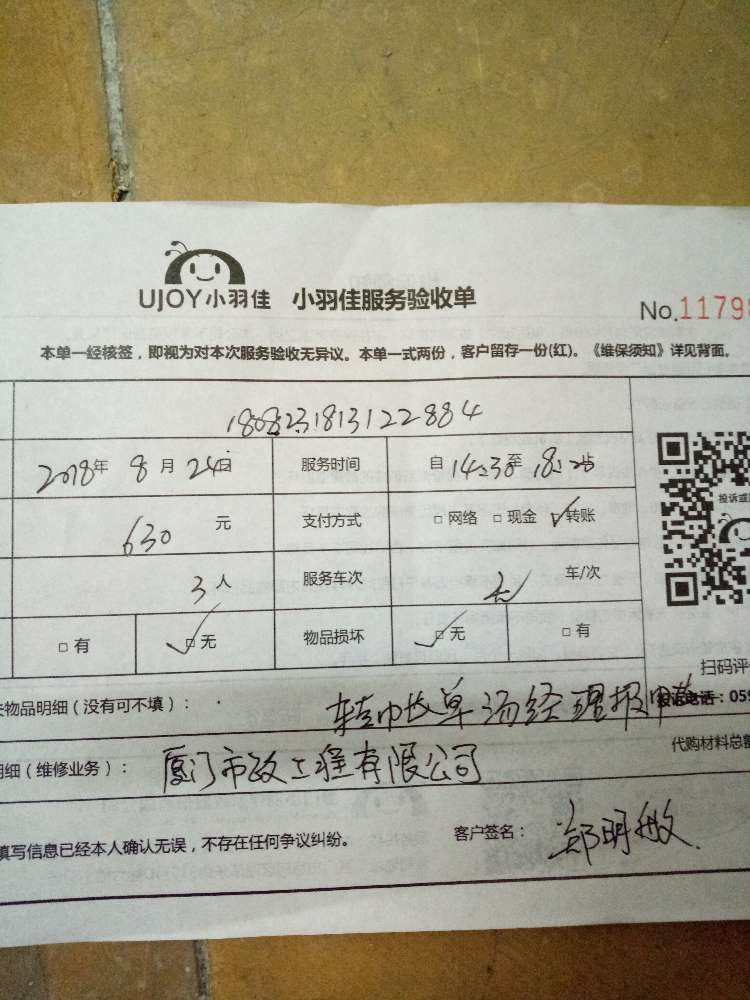 UJOY小羽佳 小羽佳服务验收单
No.11798
本单一经核签，即视为对本次服务验收无异议。本单一式两份，客户留存一份(红)。《维保须知》详见背面。
1808231813122884
2018年 8月 24日 服务时间 自 14:30至 18:
630 元 支付方式 □网络 □现金 ☑转账
投诉或
3人 服务车次 车/次
□有 ☑无 物品损坏 ☑无 □有
扫码评
物品明细（没有可不填）： 转帐单汤经理报 投诉电话：059
代购材料总
明细（维修业务）： 厦门市政工程有限公司
填写信息已经本人确认无误，不存在任何争议纠纷。 客户签名： 郑明敏